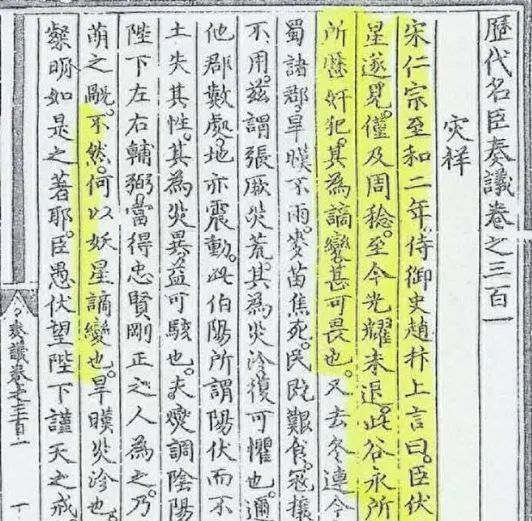 歷代名臣奏議卷之三百一
灾祥
宋仁宗至和二年侍御史趙抃上言曰。臣伏
星遂見。僅及周稔。至今光耀未退。此谷永所
所歷奸犯。其為謫變甚可畏也。又去冬連今
蜀諸郡。旱暵不雨。麥苗焦死。民旣艱食。寇攘
不用。茲謂張厥災荒。其為災沴。復可懼也。邇
他郡數處。地亦震動。此伯陽所謂陽伏而不
土失其性。其為災異。益可駭也。夫燮調陰陽
陛下左右輔弼。當得忠賢剛正之人為之。乃
萌之歟。不然。何以妖星謫變也。旱暵災沴也。
粲明如是之著耶。臣愚伏望陛下謹天之戒。
奏議卷之三百一
十